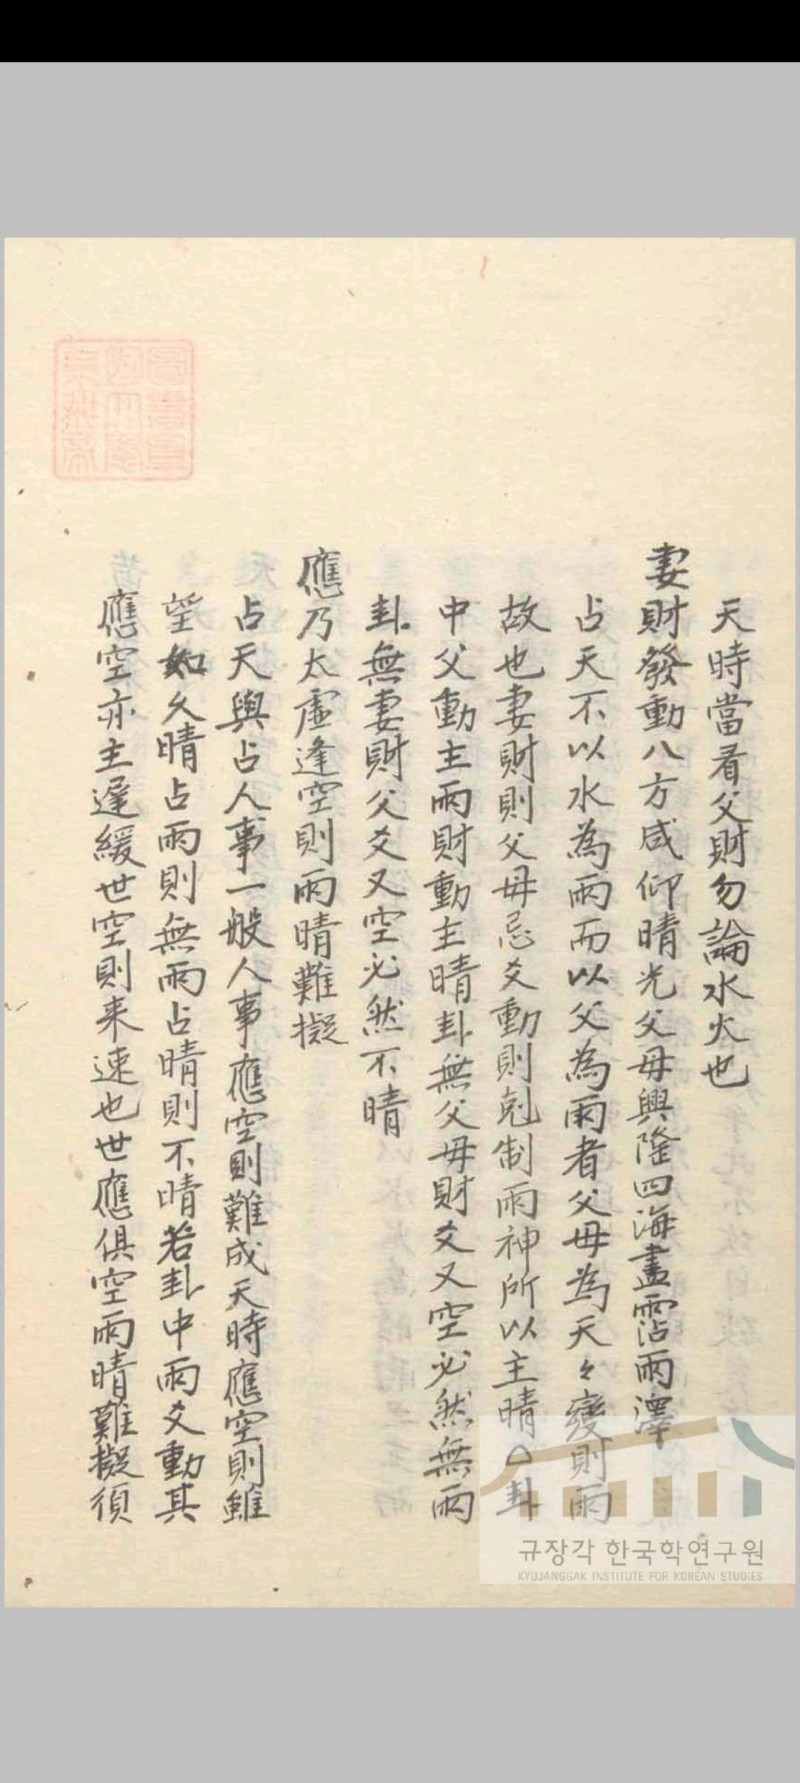 天時當看父財勿論水火也
妻財發動八方咸仰晴光父母興隆四海盡霑雨澤
占天不以水為雨而以父為雨者父母為天々變則雨
故也妻財則父母忌爻動則剋制雨神所以主晴○卦
中父動主雨財動主晴卦無父母財爻又空必然無雨
卦無妻財父爻又空必然不晴
應乃太虛逢空則雨晴難擬
占天與占人事一般人事應空則難成天時應空則雖
望如久晴占雨則無雨占晴則不晴若卦中雨爻動其
應空亦主遲緩世空則来速也世應俱空雨晴難擬須
규장각 한국학연구원
KYUJANGGAK INSTITUTE FOR KOREAN STUDIES